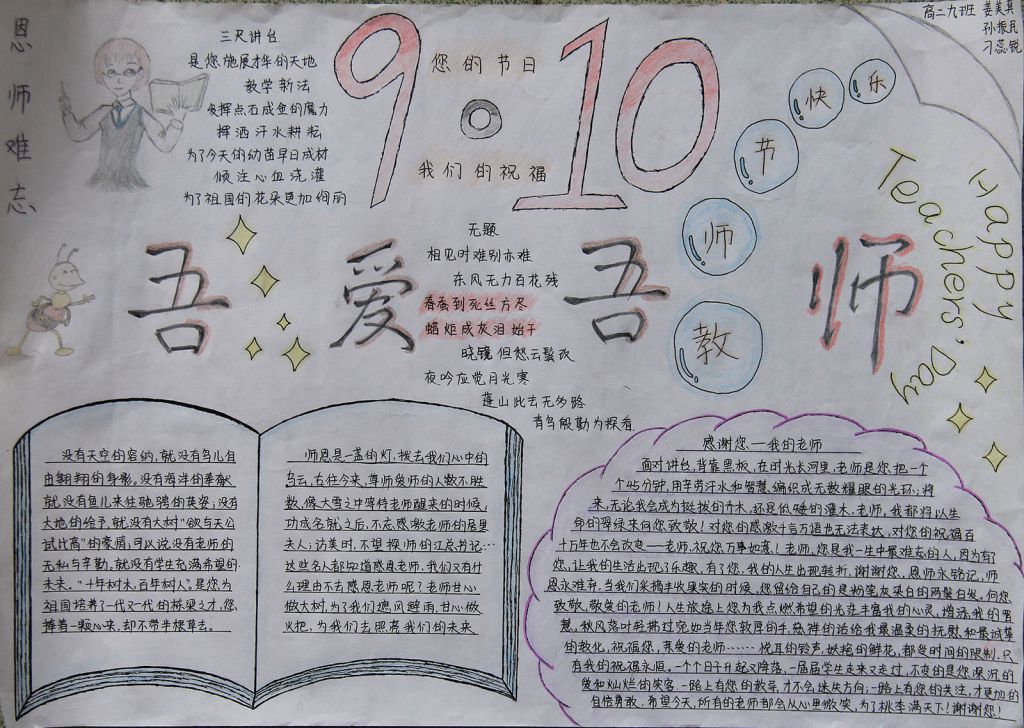 恩师难忘
高二九班 姜美真
孙振民
刁蕊锐
三尺讲台
是您施展才华的天地
教学新法
发挥点石成金的魔力
挥洒汗水耕耘
为了今天的幼苗早日成材
倾注心血浇灌
为了祖国的花朵更加绚丽
9·10
您的节日
我们的祝福
教师节快乐
Happy
Teachers' Day
吾爱吾师
无题
相见时难别亦难
东风无力百花残
春蚕到死丝方尽
蜡炬成灰泪始干
晓镜但愁云鬓改
夜吟应觉月光寒
蓬山此去无多路
青鸟殷勤为探看
没有天空的容纳,就没有鸟儿自
由翱翔的身影。没有海洋的奉献
就没有鱼儿来往驰骋的英姿;没有
大地的给予,就没有大树"欲与天公
试比高"的豪情;可以说没有老师的
无私与辛勤,就没有学生充满希望的
未来。"十年树木,百年树人"。是您为
祖国培养了一代又一代的桥梁之才,您
捧着一颗心来,却不带半根草去。
师恩是一盏的灯,拨去我们心中的
乌云,古往今来,尊师爱师的人数不胜
数,像大雪之中等待老师醒来的时候,
功成名就之后,不忘感激老师的居里
夫人;访美时,不望探师的江总书记…
这些名人都知道感恩老师,我们又有什
么理由不去感恩老师呢?老师甘心
做大树,为了我们遮风避雨,甘心做
火把,为我们去照亮我们的未来
感谢您——我的老师
面对讲台,背靠黑板,在时光长河里,老师是您把一个
个45分钟,用辛劳汗水和智慧,编织成无数耀眼的光环;将
来,无论我会成为挺拔的乔木,还是低矮的灌木,老师,我都将以生
命的翠绿来向您致敬!对您的感激千言万语也无法表达,对您的祝福百
十万年也不会改变——老师,祝您万事如意!老师,您是我一生中最难忘的人,因为有了
您,让我的生活出现了乐趣,有了您,我的人生出现转折,谢谢您,恩师永铭记,师
恩永难弃,当我们采摘丰收果实的时候,您留给自己的是粉笔灰染白的两鬓白发,向您
致敬,敬爱的老师!人生旅途上您为我点燃希望的光芒丰富我的心灵,增添我的智
慧,秋风落叶轻拂过宛如当年您敦厚的手,慈祥的话给我最温柔的抚慰和最诚挚
的教化,祝福您,亲爱的老师……悦耳的铃声,妖艳的鲜花,都受时间的限制,只
有我的祝福永恒,一个个日子升起又降落,一届届学生走来又走过,不变的是您深沉的
爱和灿烂的笑容,一路上有您的教导,才不会迷失方向;一路上有您的关注,才更加的
自信勇敢,希望今天,所有的老师都会从心里微笑,为了桃李满天下!谢谢您!